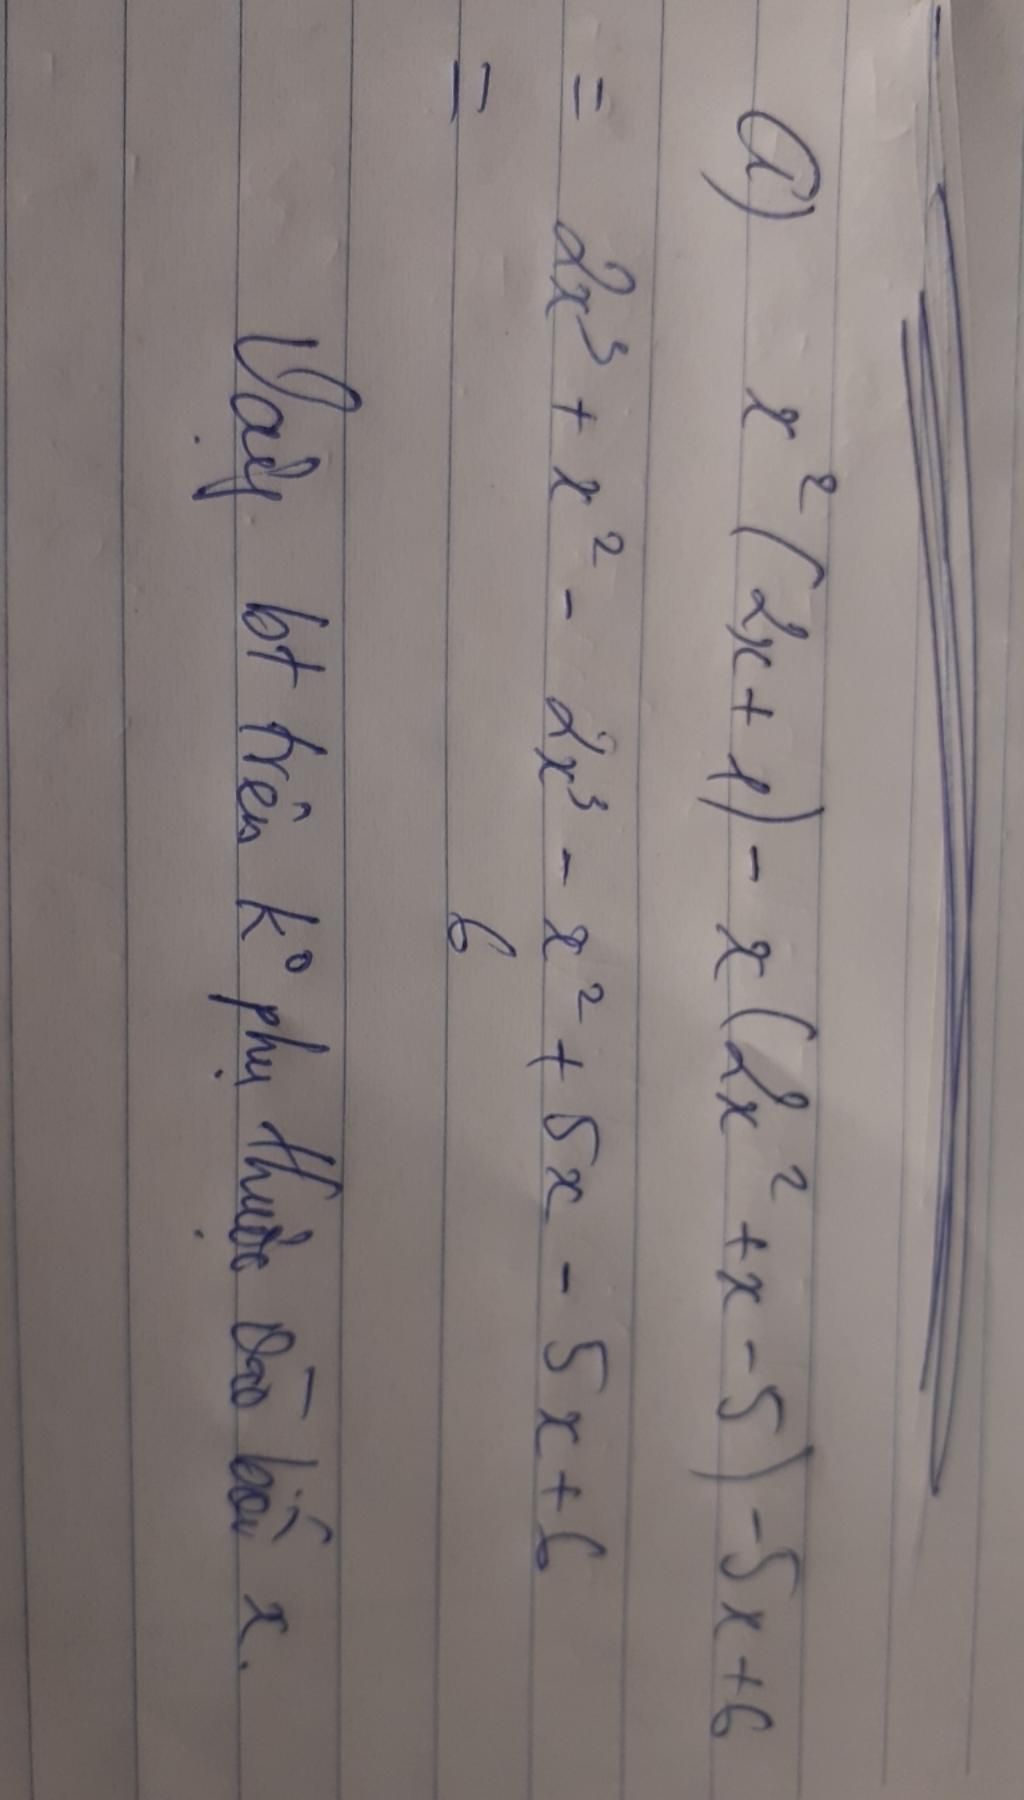 a) x²(2x+1) - x(2x²+x-5) -5x+6
= 2x³ + x² - 2x³ - x² + 5x - 5x + 6
= 6
Vậy bt trên k° phụ thuộc vào biến x.